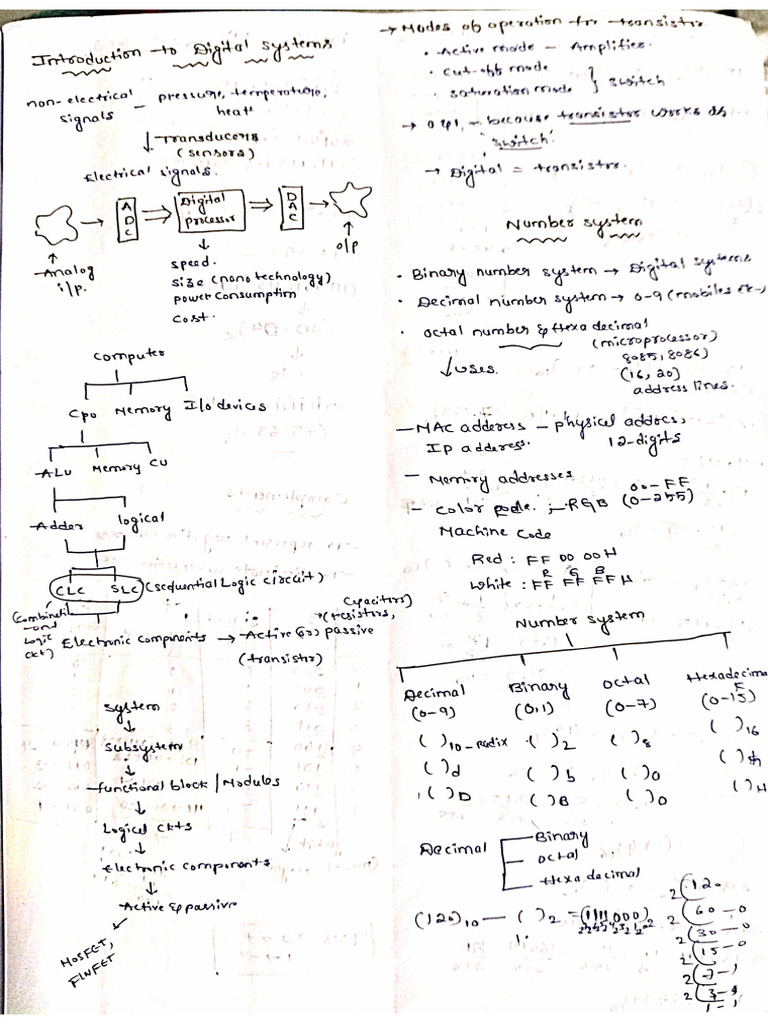 Introduction to Digital systems
non-electrical signals - pressure, temperature, heat
Transducers
(sensors)
Electrical signals.
ADC
Digital processor
DAC
Analog i/p.
o/p
speed.
size (nano technology)
power consumption
cost.
computer
Cpu Memory I/o devices
ALU Memory CU
Adder logical
CLC SLC (sequential Logic circuit)
Electronic components → Active (or) passive
(transistor)
(resistors, capacitors)
system
↓
subsystem
↓
functional block / Modules
↓
Logical ckts
↓
Electronic components
↓
Active & passive
MOSFET,
FINFET
→ Modes of operation for transistor
• Active mode - Amplifier.
• cut-off mode
• saturation mode } switch
→ 0 & 1, - because transistor works as
'switch'.
→ Digital = transistor.
Number system
• Binary number system → Digital systems
• Decimal number system → 0-9 (mobiles
• octal number & Hexa decimal
(microprocessor)
8085, 8086)
(16, 20)
address lines.
↓ uses.
- MAC address - physical address,
IP address. 12-digits
- Memory addresses
00-FF
- color code. - RGB (0-255)
Machine code
Red : FF 00 00 H
R G B
White : FF FF FF H
Number system
Decimal Binary octal Hexadecimal
(0-9) (0,1) (0-7) (0-15)
F
( )10 - radix ( )2 ( )8 ( )16
( )d ( )b ( )o ( )h
( )D ( )B ( )O ( )H
Decimal
Binary
octal
Hexa decimal
(120)10 — ( )2 = (1111000)2
2 120
2 60 - 0
2 30 - 0
2 15 - 0
2 7 - 1
2 3 - 1
1 - 1